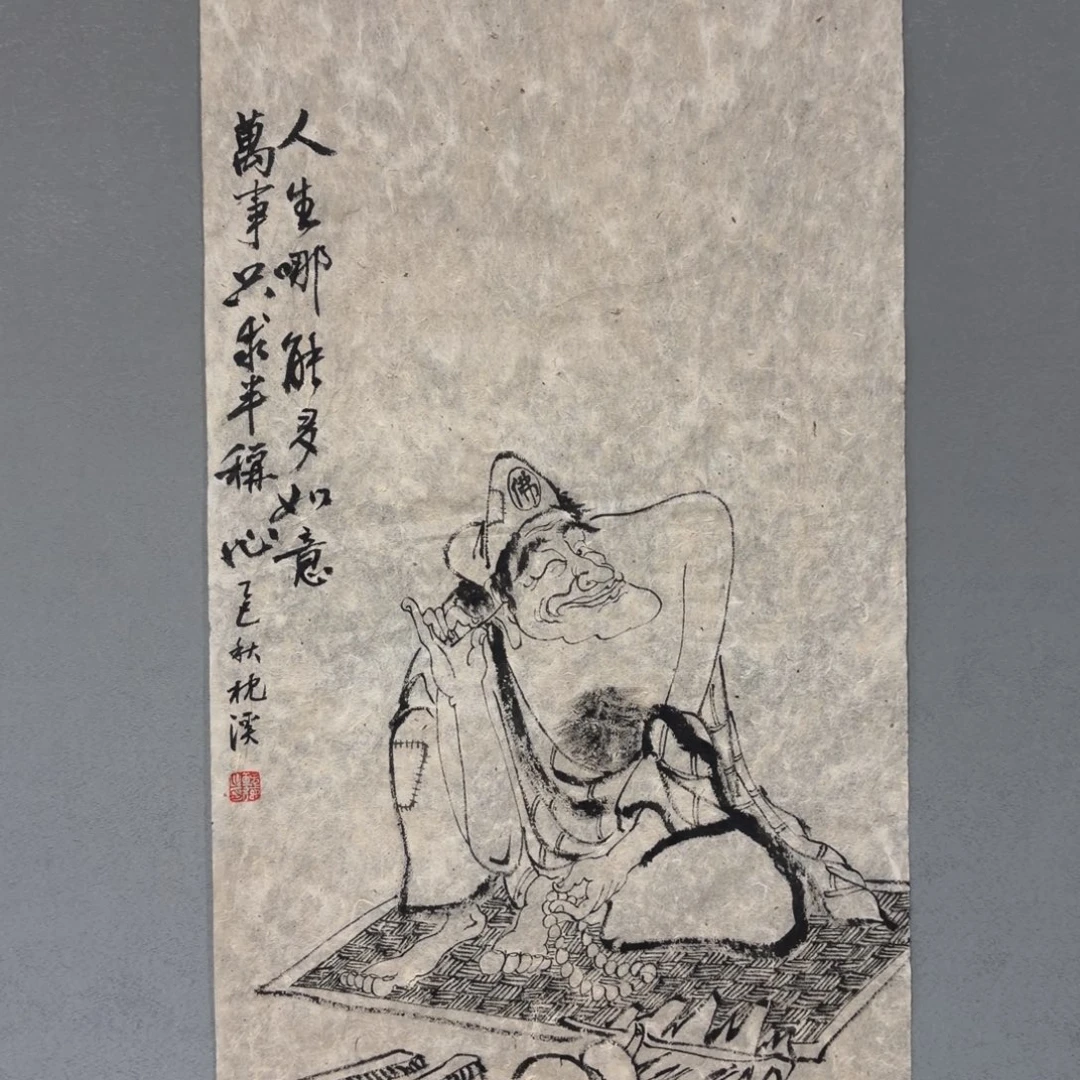 人生哪能多如意
萬事只求半稱心
乙巳秋枕溪
佛